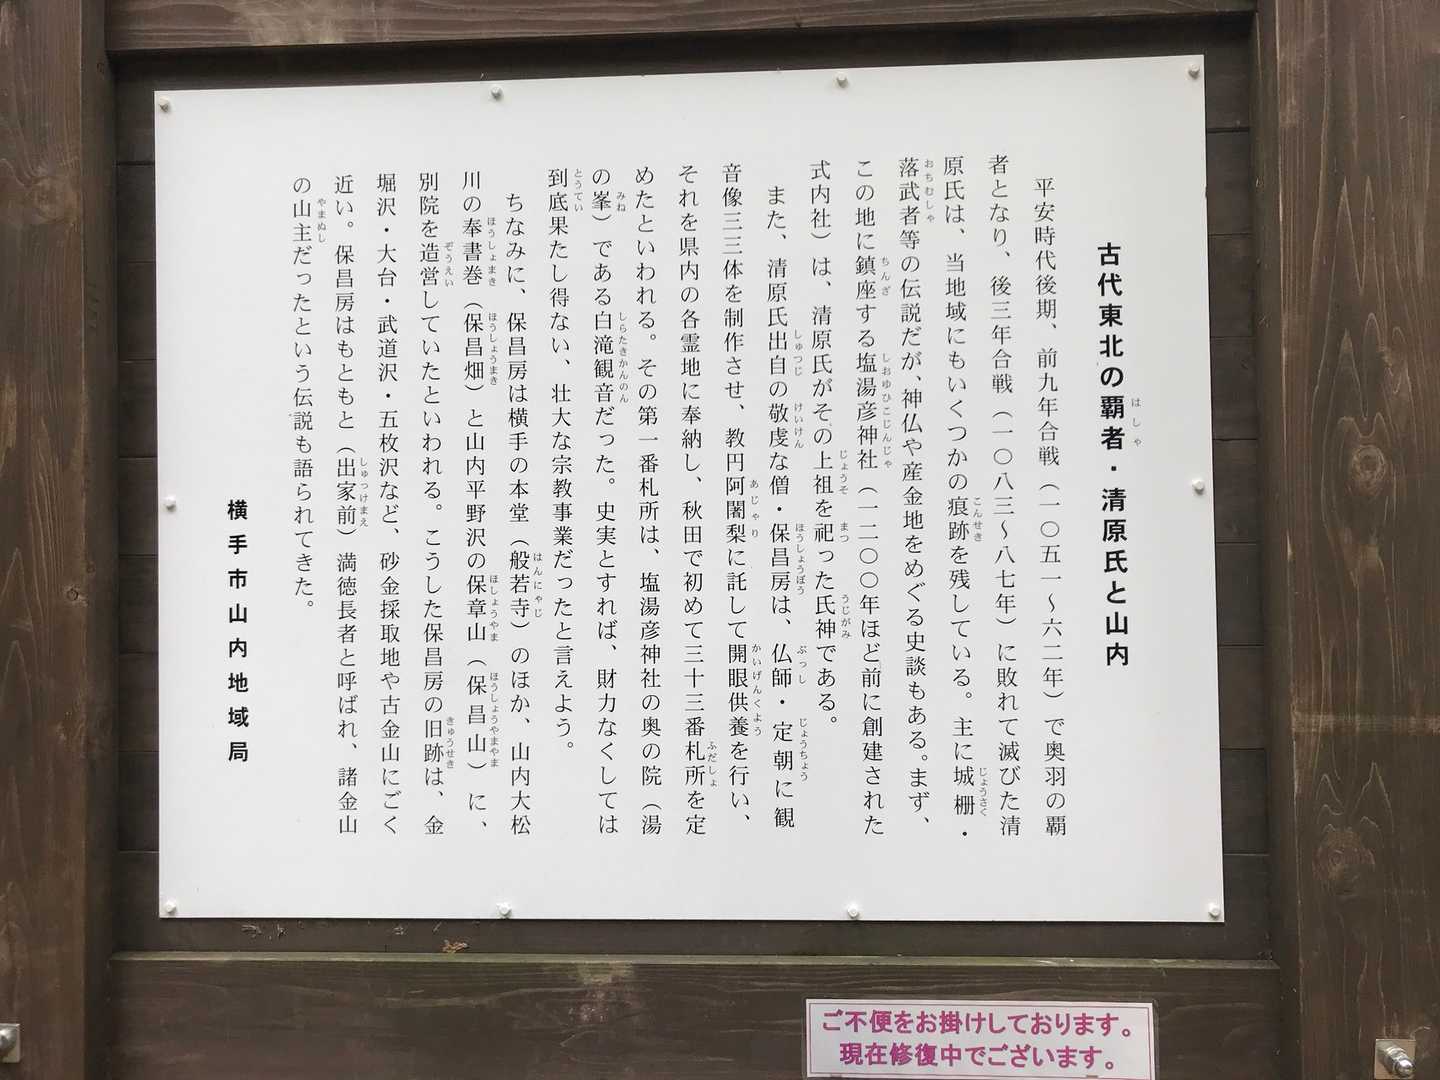 古代東北の覇者・清原氏と山内
平安時代後期、前九年合戦（一〇五一～六二年）で奥羽の覇
者となり、後三年合戦（一〇八三～八七年）に敗れて滅びた清
原氏は、当地域にもいくつかの痕跡を残している。主に城柵・
落武者等の伝説だが、神仏や産金地をめぐる史談もある。まず、
この地に鎮座する塩湯彦神社（一二〇〇年ほど前に創建された
式内社）は、清原氏がその上祖を祀った氏神である。
また、清原氏出自の敬虔な僧・保昌房は、仏師・定朝に観
音像三三体を制作させ、教円阿闍梨に託して開眼供養を行い、
それを県内の各霊地に奉納し、秋田で初めて三十三番札所を定
めたといわれる。その第一番札所は、塩湯彦神社の奥の院（湯
の峯）である白滝観音だった。史実とすれば、財力なくしては
到底果たし得ない、壮大な宗教事業だったと言えよう。
ちなみに、保昌房は横手の本堂（般若寺）のほか、山内大松
川の奉書巻（保昌畑）と山内平野沢の保章山（保昌山）に、
別院を造営していたといわれる。こうした保昌房の旧跡は、金
堀沢・大台・武道沢・五枚沢など、砂金採取地や古金山にごく
近い。保昌房はもともと（出家前）満徳長者と呼ばれ、諸金山
の山主だったという伝説も語られてきた。
横手市山内地域局
ご不便をお掛けしております。
現在修復中でございます。